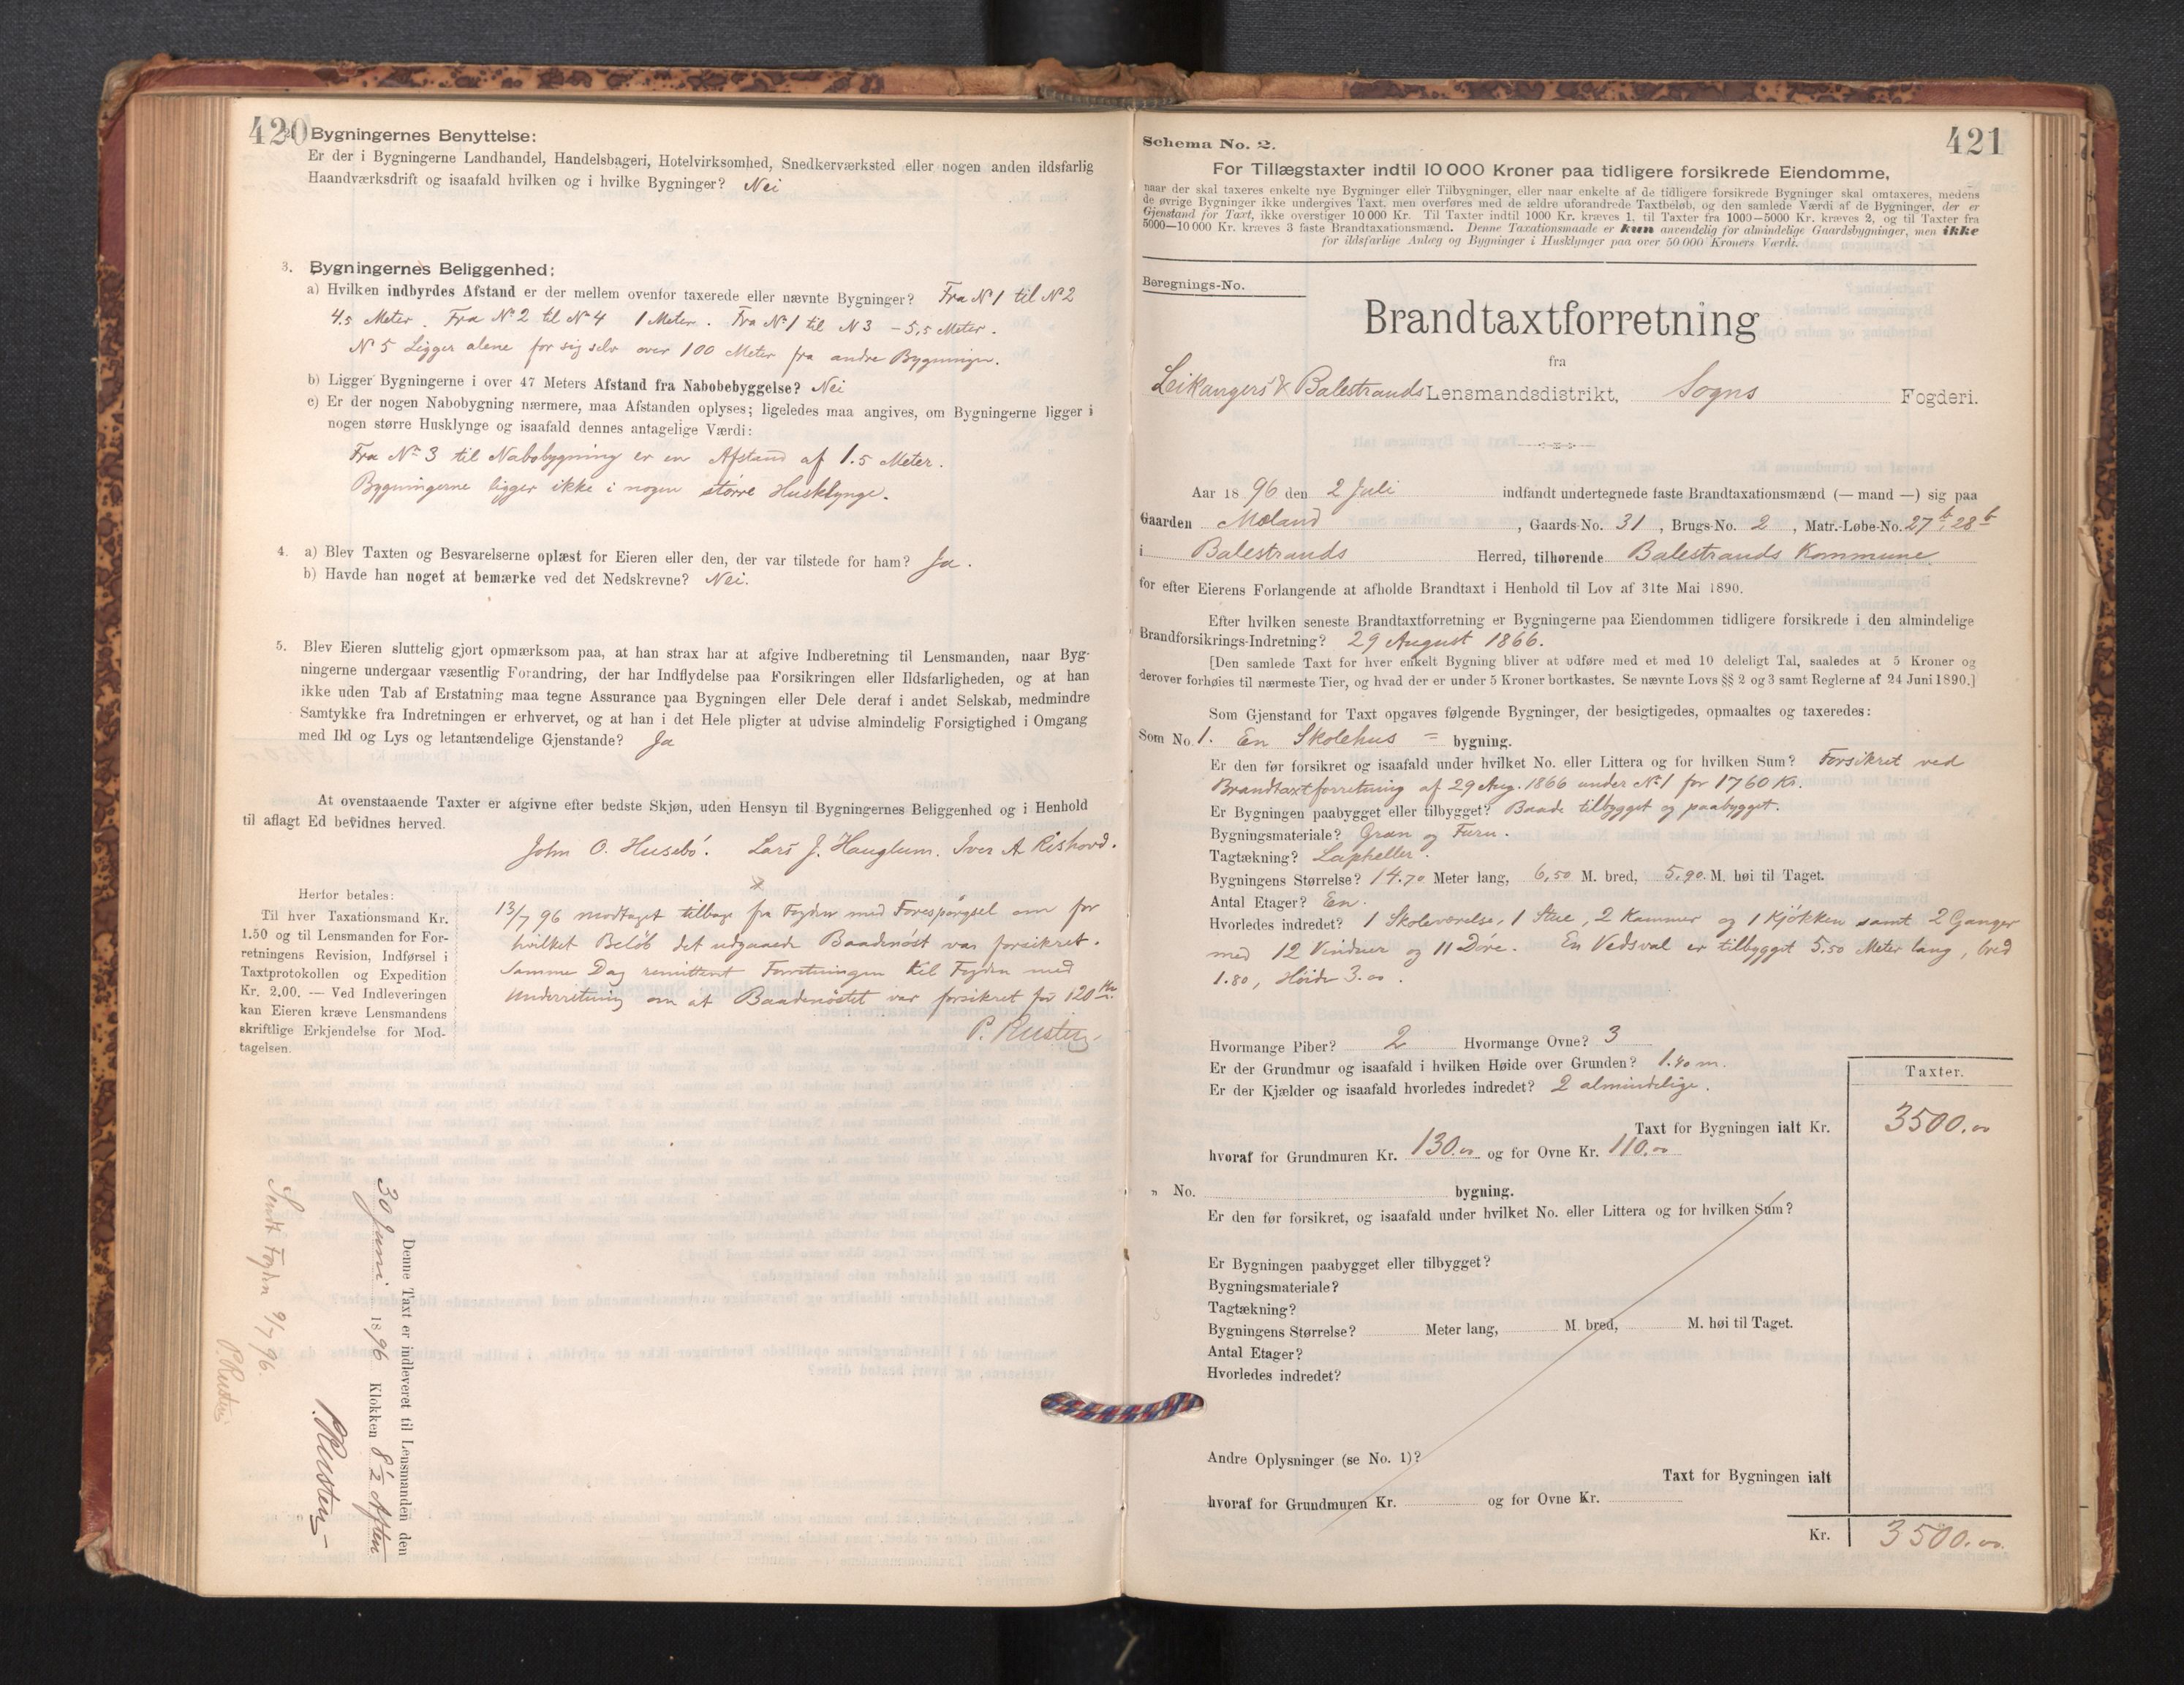 420
2. Bygningernes Benyttelse:
Er der i Bygningerne Landhandel, Handelsbageri, Hotelvirksomhed, Snedkerværksted eller nogen anden ildsfarlig
Haandværksdrift og isaafald hvilken og i hvilke Bygninger? Nei
3. Bygningernes Beliggenhed:
a) Hvilken indbyrdes Afstand er der mellem ovenfor taxerede eller nævnte Bygninger? Fra No 1 til No 2
4.5 Meter. Fra No 2 til No 4 1 Meter. Fra No 1 til N 3 – 5,5 Meter.
No 5 Ligger alene for sig selv over 100 Meter fra andre Bygninger.
b) Ligger Bygningerne i over 47 Meters Afstand fra Nabobebyggelse? Nei
c) Er der nogen Nabobygning nærmere, maa Afstanden oplyses; ligeledes maa angives, om Bygningerne ligger i
nogen større Husklynge og isaafald dennes antagelige Værdi:
Fra No 3 til Nabobygning er en Afstand af 1.5 Meter.
Bygningerne ligger ikke i nogen större Husklynge.
4. a) Blev Taxten og Besvarelserne oplæst for Eieren eller den, der var tilstede for ham? Ja.
b) Havde han noget at bemærke ved det Nedskrevne? Nei.
5. Blev Eieren sluttelig gjort opmærksom paa, at han strax har at afgive Indberetning til Lensmanden, naar Byg-
ningerne undergaar væsentlig Forandring, der har Indflydelse paa Forsikringen eller Ildsfarligheden, og at han
ikke uden Tab af Erstatning maa tegne Assurance paa Bygningen eller Dele deraf i andet Selskab, medmindre
Samtykke fra Indretningen er erhvervet, og at han i det Hele pligter at udvise almindelig Forsigtighed i Omgang
med Ild og Lys og letantændelige Gjenstande? Ja
At ovenstaaende Taxter er afgivne efter bedste Skjøn, uden Hensyn til Bygningernes Beliggenhed og i Henhold
til aflagt Ed bevidnes herved.
John O. Husebö. Lars J. Hauglum. Iver A. Rishovd.
Herfor betales:
Til hver Taxationsmand Kr.
1.50 og til Lensmanden for For-
retningens Revision, Indførsel i
Taxtprotokollen og Expedition
Kr. 2.00. — Ved Indleveringen
kan Eieren kræve Lensmandens
skriftlige Erkjendelse for Mod-
tagelsen.
13/7 96 modtaget tilbage fra Fogden med Forespörgsel om for
hvilket Belöb det udgaaede Baadenöst var forsikret.
Samme Dag remitteret Forretningen til Fogden med
Underretning om at Baadenöstet var forsikret for 120 Kr.
P. Rusten
Denne Taxt er indleveret til Lensmanden den
30 Juni 1896 Klokken 8 1/2 Aften
P. Rusten
Sendt Fogden 9/7 96.
P. Rusten
421
Schema No. 2.
For Tillægstaxter indtil 10 000 Kroner paa tidligere forsikrede Eiendomme,
naar der skal taxeres enkelte nye Bygninger eller Tilbygninger, eller naar enkelte af de tidligere forsikrede Bygninger skal omtaxeres, medens
de øvrige Bygninger ikke undergives Taxt, men overføres med de ældre uforandrede Taxtbeløb, og den samlede Værdi af de Bygninger, der er
Gjenstand for Taxt, ikke overstiger 10 000 Kr. Til Taxter indtil 1000 Kr. kræves 1, til Taxter fra 1000—5000 Kr. kræves 2, og til Taxter fra
5000—10 000 Kr. kræves 3 faste Brandtaxationsmænd. Denne Taxationsmaade er kun anvendelig for almindelige Gaardsbygninger, men ikke
for ildsfarlige Anlæg og Bygninger i Husklynger paa over 50 000 Kroners Værdi.
Beregnings-No.
Brandtaxtforretning
fra
Leikangers & Balestrands Lensmandsdistrikt, Sogns Fogderi.
Aar 1896 den 2 Juli indfandt undertegnede faste Brandtaxationsmænd (— mand —) sig paa
Gaarden Mæland, Gaards-No. 31, Brugs-No. 2, Matr.-Løbe-No. 27 b, 28 b
i Balestrands Herred, tilhørende Balestrands Kommune
for efter Eierens Forlangende at afholde Brandtaxt i Henhold til Lov af 31te Mai 1890.
Efter hvilken seneste Brandtaxtforretning er Bygningerne paa Eiendommen tidligere forsikrede i den almindelige
Brandforsikrings-Indretning? 29 August 1866.
[Den samlede Taxt for hver enkelt Bygning bliver at udføre med et med 10 deleligt Tal, saaledes at 5 Kroner og
derover forhøies til nærmeste Tier, og hvad der er under 5 Kroner bortkastes. Se nævnte Lovs §§ 2 og 3 samt Reglerne af 24 Juni 1890.]
Som Gjenstand for Taxt opgaves følgende Bygninger, der besigtigedes, opmaaltes og taxeredes:
Som No. 1. En Skolehus = bygning.
Er den før forsikret og isaafald under hvilket No. eller Littera og for hvilken Sum? Forsikret ved
Brandtaxtforretning af 29 Aug. 1866 under No 1 for 1760 Kr.
Er Bygningen paabygget eller tilbygget? Baade tilbygget og paabygget.
Bygningsmateriale? Gran og Furu.
Tagtækning? Lapheller.
Bygningens Størrelse? 14.70 Meter lang, 6,50 M. bred, 5,90 M. høi til Taget.
Antal Etager? En.
Hvorledes indredet? 1 Skoleværelse, 1 Stue, 2 Kammer og 1 Kjökken samt 2 Ganger
med 12 Vinduer og 11 Döre. En Vedsval er tilbygget 5.50 Meter lang, bred
1.80, Höide 3.00.
Hvormange Piber? 2 Hvormange Ovne? 3
Er der Grundmur og isaafald i hvilken Høide over Grunden? 1.40 m.
Er der Kjælder og isaafald hvorledes indredet? 2 almindelige.
Taxter.
Taxt for Bygningen ialt Kr. 3500.00
hvoraf for Grundmuren Kr. 130.00 og for Ovne Kr. 110.00
" No. bygning.
Er den før forsikret, og isaafald under hvilket No. eller Littera og for hvilken Sum?
Er Bygningen paabygget eller tilbygget?
Bygningsmateriale?
Tagtækning?
Bygningens Størrelse? Meter lang, M. bred, M. høi til Taget.
Antal Etager?
Hvorledes indredet?
Andre Oplysninger (se No. 1)?
Taxt for Bygningen ialt
hvoraf for Grundmuren Kr. og for Ovne Kr.
Kr. 3500.00